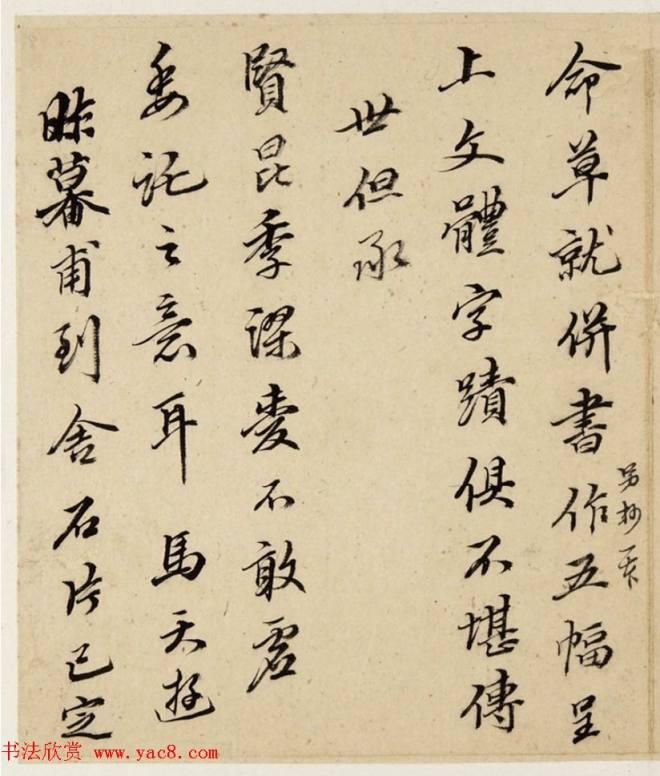 命草就併書作五幅呈
另抄一
上文體字蹟俱不堪傳
世但承
賢昆季謬愛不敢虛
委託之意耳 馬天游
昨暮甫到舍石片已定
书法欣赏 www.yac8.com